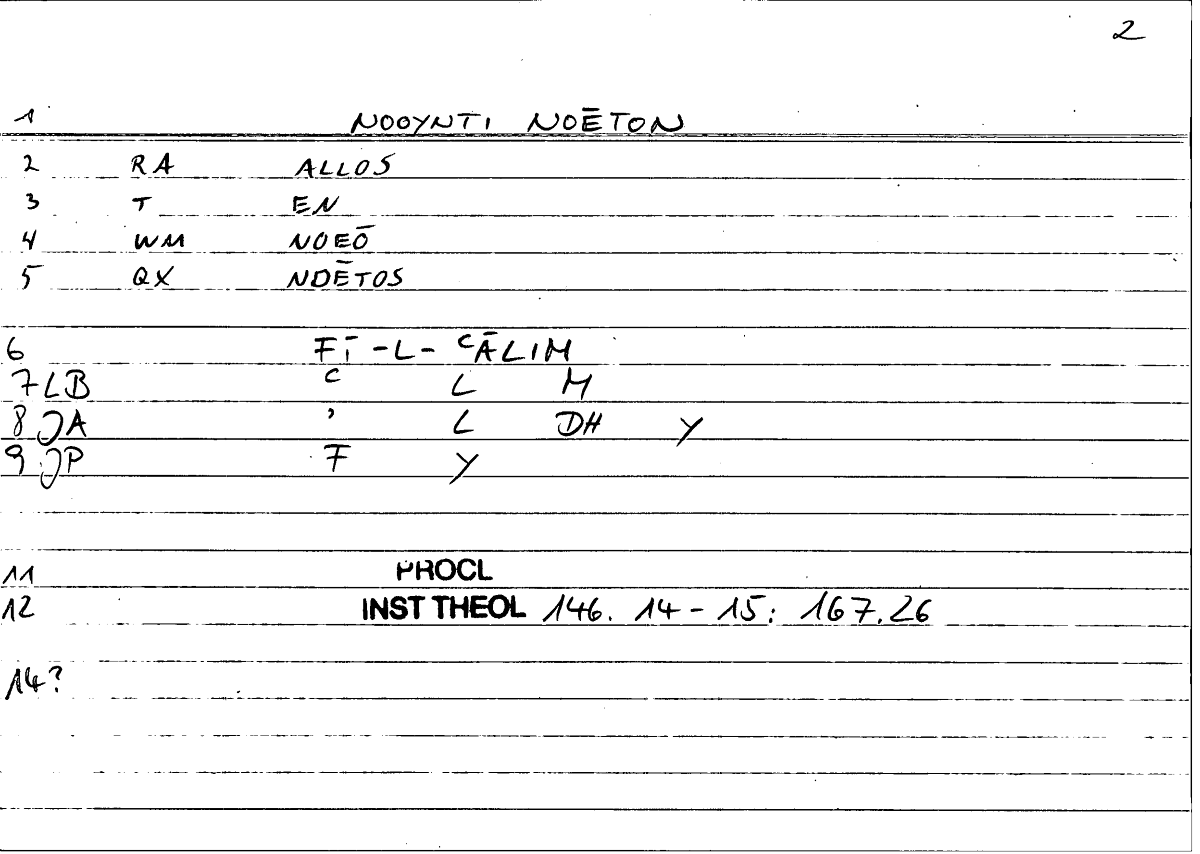 2
1 NOOYNTI NOĒTON
2 RA ALLOS
3 T EN
4 WM NOEŌ
5 QX NOĒTOS
6 FĪ-L-ᶜĀLIM
7 LB ᶜ L M
8 JA ' L DH Y
9 JP F Y
11 PROCL
12 INST THEOL 146. 14-15: 167.26
14?